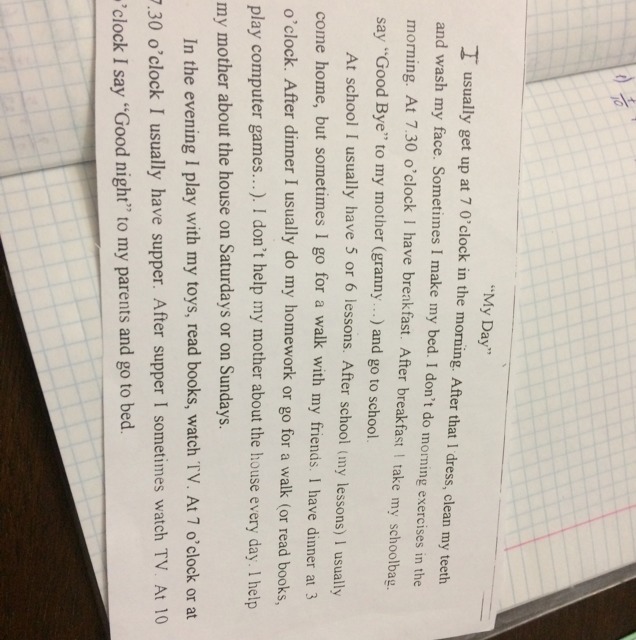 "My Day"
I usually get up at 7 0'clock in the morning. After that I dress, clean my teeth
and wash my face. Sometimes I make my bed. I don't do morning exercises in the
morning. At 7.30 o'clock I have breakfast. After breakfast I take my schoolbag.
say "Good Bye" to my mother (granny...) and go to school.
At school I usually have 5 or 6 lessons. After school (my lessons) I usually
come home, but sometimes I go for a walk with my friends. I have dinner at 3
o'clock. After dinner I usually do my homework or go for a walk (or read books,
play computer games...). I don't help my mother about the house every day. I help
my mother about the house on Saturdays or on Sundays.
In the evening I play with my toys, read books, watch TV. At 7 o'clock or at
7.30 o'clock I usually have supper. After supper I sometimes watch TV. At 10
o'clock I say "Good night" to my parents and go to bed.